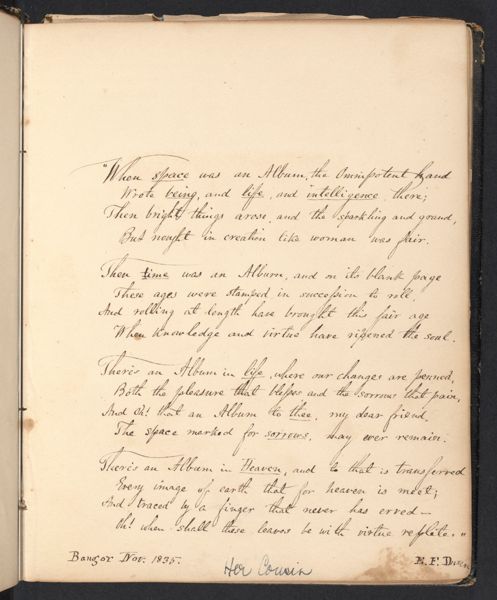 "When space was an Album, the Omnipotent hand
Wrote being, and life, and intelligence there;
Then bright things arose, and the sparkling and grand,
But nought in creation like woman was fair.
Then time was an Album, and on its blank page
These ages were stamped in succession to roll,
And rolling at length have brought this fair age
When knowledge and virtue have ripened the soul.
There's an Album in life, where our changes are penned,
Both the pleasure that blesses and the sorrows that pain,
And Oh! that an Album to thee, my dear friend,
The space marked for sorrows, may ever remain.
There's an Album in Heaven, and to that is transferred
Every image of earth that for heaven is meet;
And traced by a finger that never has erred—
Oh! when shall these leaves be with virtue replete."
Bangor Nov. 1835. E. F.
Her Cousin